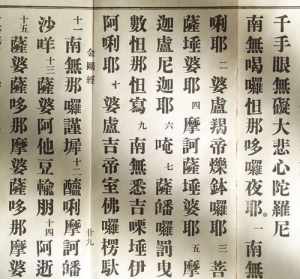 千手眼無礙大悲心陀羅尼
南無喝囉怛那哆囉夜耶 一 南無
唎耶 二 婆盧羯帝爍鉢囉耶 三 菩
薩埵婆耶 四 摩訶薩埵婆耶 五 摩
迦盧尼迦耶 六 唵 七 薩皤囉罰曳
數怛那怛寫 九 南無悉吉嘌埵伊
阿唎耶 十 婆盧吉帝室佛囉楞馱
金剛經 廿九
十一 南無那囉謹墀 十二 醯唎摩訶皤
沙咩 十三 薩婆阿他豆輸朋 十四 阿逝
十五 薩婆薩哆那摩婆薩哆那摩婆